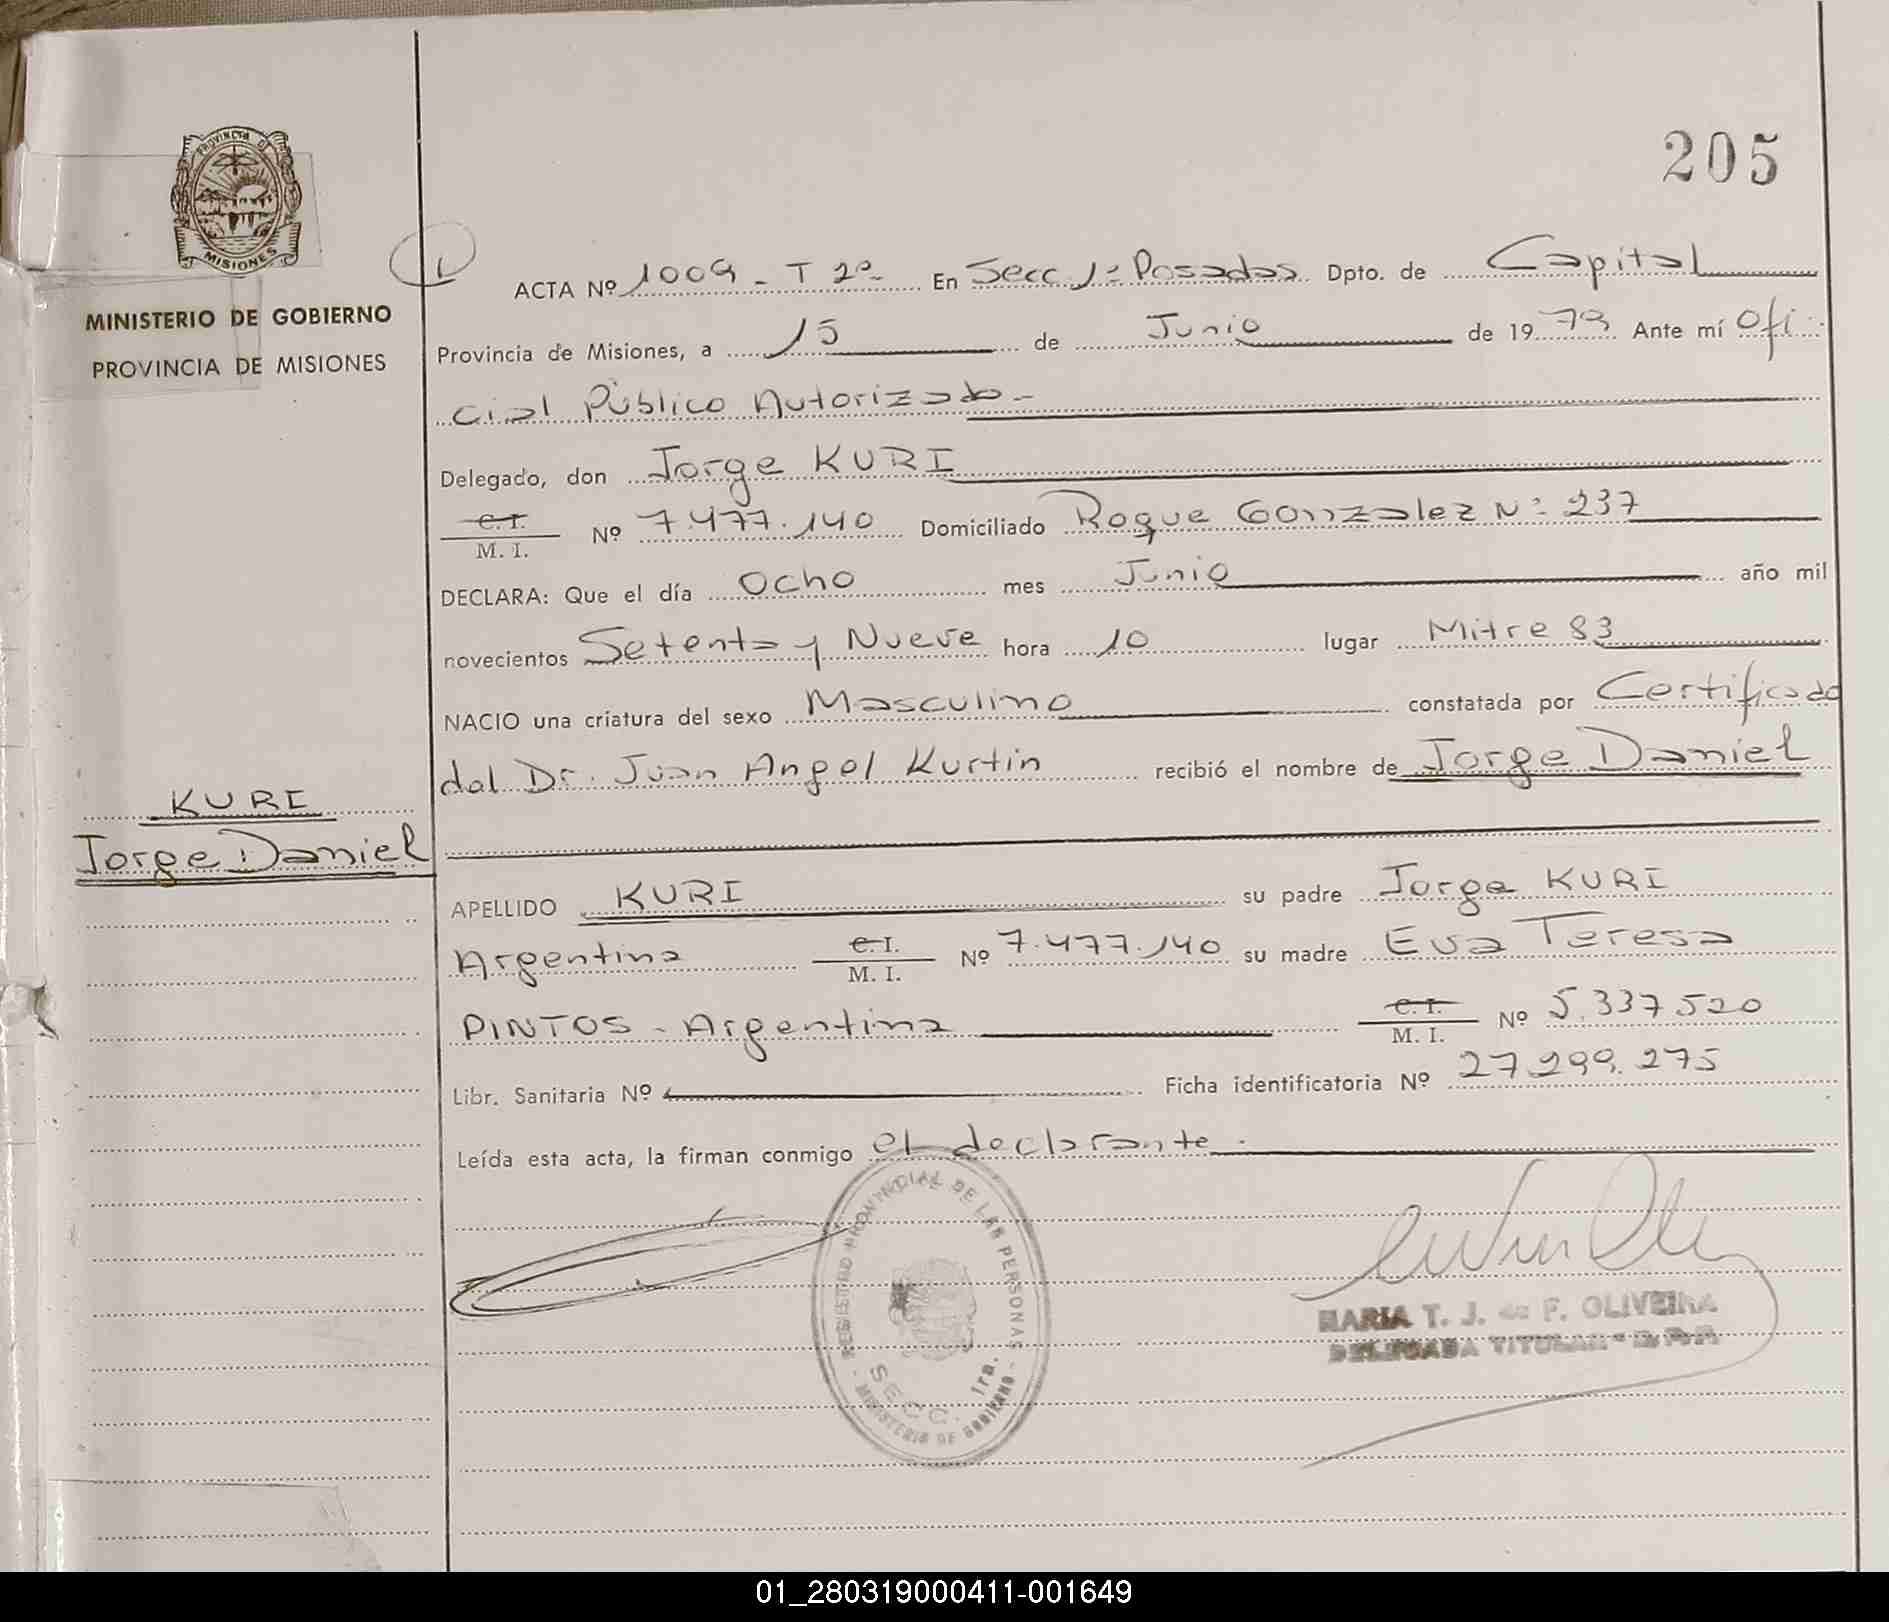 205
PROVINCIA D
MISIONES
MINISTERIO DE GOBIERNO
PROVINCIA DE MISIONES
ACTA Nº 1009 - T 2º- En Secc 1ª Posadas Dpto. de Capital
Provincia de Misiones, a 15 de Junio de 1979 Ante mí Ofi
cial Público Autorizado -
Delegado, don Jorge KURI
C. I.
M. I. Nº 7477.140 Domiciliado Roque Gonzalez Nº 237
DECLARA: Que el día Ocho mes Junio año mil
novecientos Setenta y Nueve hora 10 lugar Mitre 83
NACIO una criatura del sexo Masculino constatada por Certificado
del Dr. Juan Angel Kurtin recibió el nombre de Jorge Daniel
KURI
Jorge Daniel
APELLIDO KURI su padre Jorge KURI
Argentina C.I.
M. I. Nº 7.477.140 su madre Eva Teresa
PINTOS - Argentina C. I.
M. I. Nº 5.337.520
Libr. Sanitaria Nº Ficha identificatoria Nº 27.299.275
Leída esta acta, la firman conmigo el declarante.
REGISTRO PROVINCIAL DE LAS PERSONAS
SECC. 1ra.
MINISTERIO DE GOBIERNO
MARIA T. J. de F. OLIVEIRA
DELEGADA TITULAR - R.P.P.
01_280319000411-001649